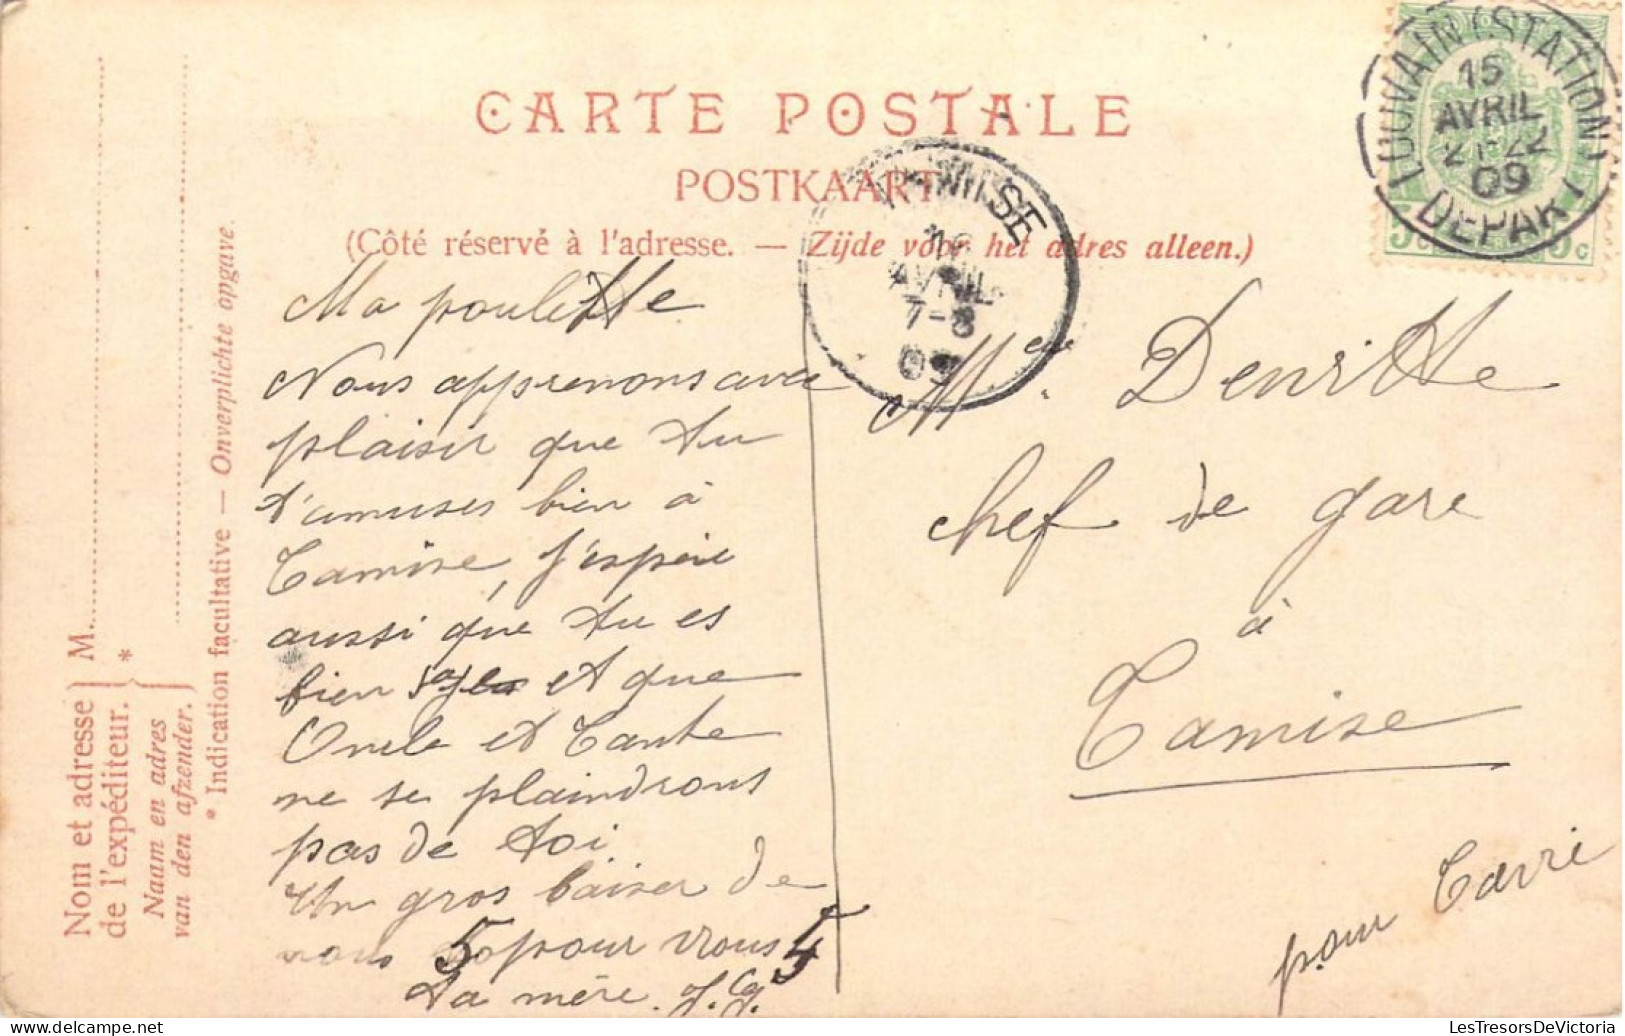 CARTE POSTALE
POSTKAART
(Côté réservé à l'adresse. — Zijde voor het adres alleen.)
LOUVAIN (STATION)
15
AVRIL
21-22
09
DEPART
5c 5c
SE
16
AVRIL
7-8
09
Nom et adresse de l'expéditeur. } M. *
Naam en adres van den afzender. }
* Indication facultative — Onverplichte opgave.
Ma poulette
Nous apprenons avec
plaisir que tu
t'amuses bien à
Tamise, j'espère
aussi que tu es
bien sage et que
Oncle et Tante
ne se plaindrons
pas de toi
Un gros baiser de
nous 5 pour vous 5
Ta mère. J.G.
Mr Denritte
chef de gare
à
Tamise
pour
LesTresorsDeVictoria